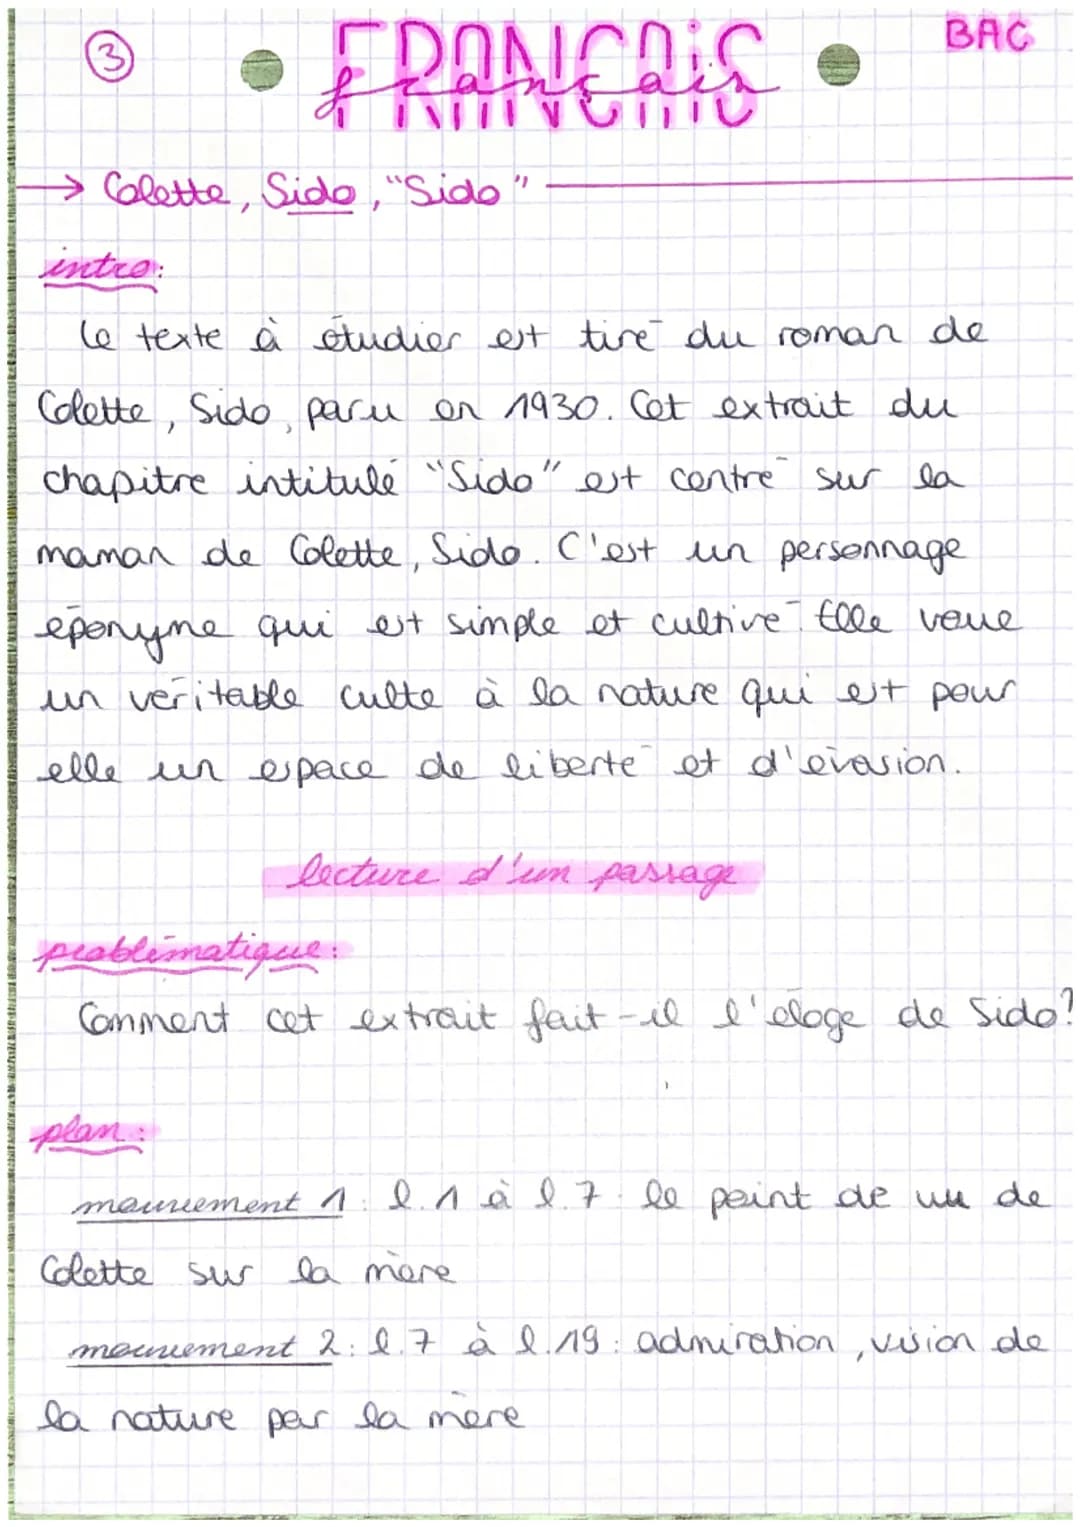 ③
FRANÇAIS
français
BAC
→ Colette, Sido, "Sido"
intro:
Le texte à étudier est tiré du roman de
Colette, Sido, paru en 1930. Cet extrait du
chapitre intitulé "Sido" est centré sur la
maman de Colette, Sido. C'est un personnage
éponyme qui est simple et cultivé. Elle voue
un véritable culte à la nature qui est pour
elle un espace de liberté et d'évasion.
lecture d'un passage
problématique:
Comment cet extrait fait-il l'éloge de Sido?
plan:
mouvement 1: l.1 à l.7: le point de vu de
Colette sur la mère
mouvement 2: l.7 à l.19: admiration, vision de
la nature par la mère